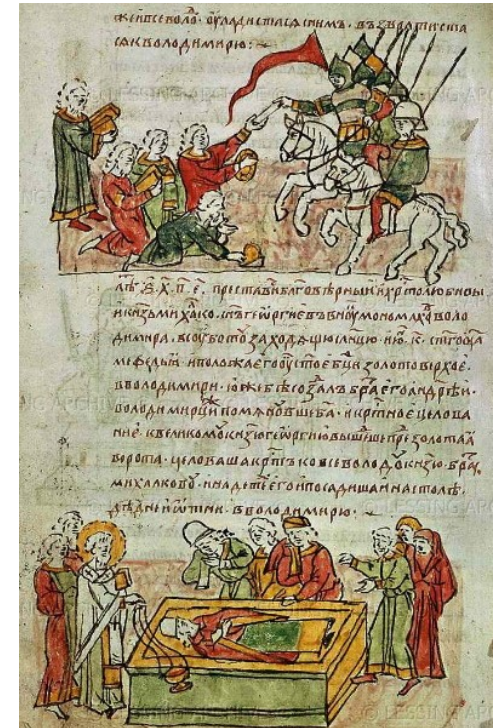 жеивсеволо. оуладистасѧ снимъ. възвратиста
сѧ к володимирю:~
лѣ ҂ѕ.х.п.е. преставиблаговѣрныи ихрстолюбивы
и кнѧзь михако. снъ георгиевъ внꙋ мономахꙋ воло
димира. всꙋботꙋ заходѧшю слнцю. ию. к. стго ѡца
мефедьꙗ. и положаꙗ его оустое бци золотоверхое.
вволодимири. юже бѣ создалъ бра его андрѣи.
володимирци помѧнꙋвше ба. и крпное целова
ние. квеликомꙋ кнзю георгиовы. шеше пре золотаа
ворота. целоваша крпъ ко всеволодꙋ кнзю. бра
михалковꙋ. и надете его и посадиша ина столѣ.
дѣдне и ѡтни. вволодимирю.
© LESSING ARCHIVE